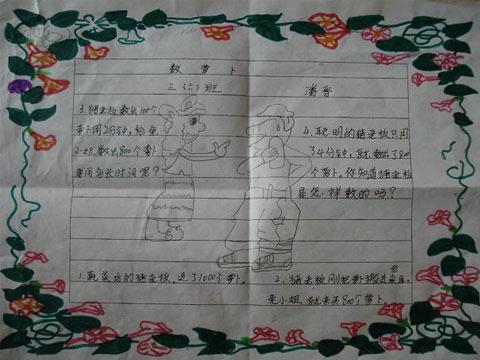 数萝卜
三（六）班 潘晋
3.猪老板数出100个
萝卜用2分钟，给兔
小姐数出800个萝卜
要用多长时间呢？
4.聪明的猪老板只用
了4分钟，就数出了800
个萝卜。你知道猪老板
是怎样数的吗？
1.蔬菜店的猪老板，进了1000个萝卜。
2.猪老板刚把萝卜搬进仓库，
兔小姐就来买800个萝卜